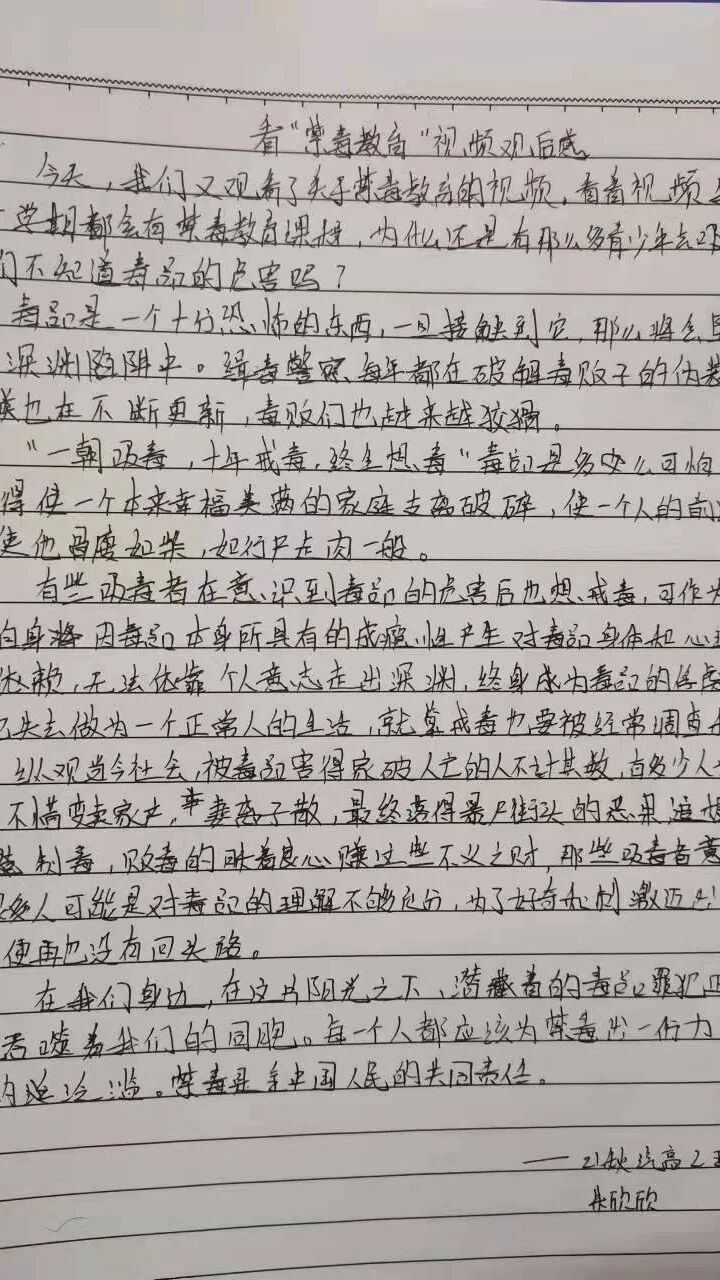 看“禁毒教育”视频观后感
今天，我们又观看了关于禁毒教育的视频，看着视频
学期都会有禁毒教育课程，为什么还是有那么多青少年去吸
们不知道毒品的危害吗？
毒品是一个十分恐怖的东西，一旦接触到它，那么将会
深渊陷阱中。缉毒警察每年都在破解毒败子的伪装
也在不断更新，毒败们也越来越狡猾。
“一朝吸毒，十年戒毒，终生想毒”毒品是多么可怕
得使一个本来幸福美满的家庭支离破碎，使一个人的前
使他骨瘦如柴，如行尸走肉一般。
有些吸毒者在意识到毒品的危害后也想戒毒，可作为
自身将因毒品本身所具有的成瘾性产生对毒品身体和心理
依赖，无法依靠个人意志走出深渊，终身成为毒品的俘虏
失去做为一个正常人的生活，就算戒毒也要被经常调查
纵观当今社会，被毒品害得家破人亡的人不计其数，有多少人
不惜变卖家产，妻离子散，最终落得暴尸街头的恶果，
制毒，败毒的昧着良心赚这些不义之财，那些吸毒者意
多人可能是对毒品的理解不够充分，为了好奇和刺激迈出
便再也没有回头路。
在我们身边，在这片阳光之下，潜藏着的毒品罪犯正
吞噬着我们的同胞。每一个人都应该为禁毒出一份力
泛滥。禁毒是全中国人民的共同责任。
——21秋汽高2班
朱欣欣